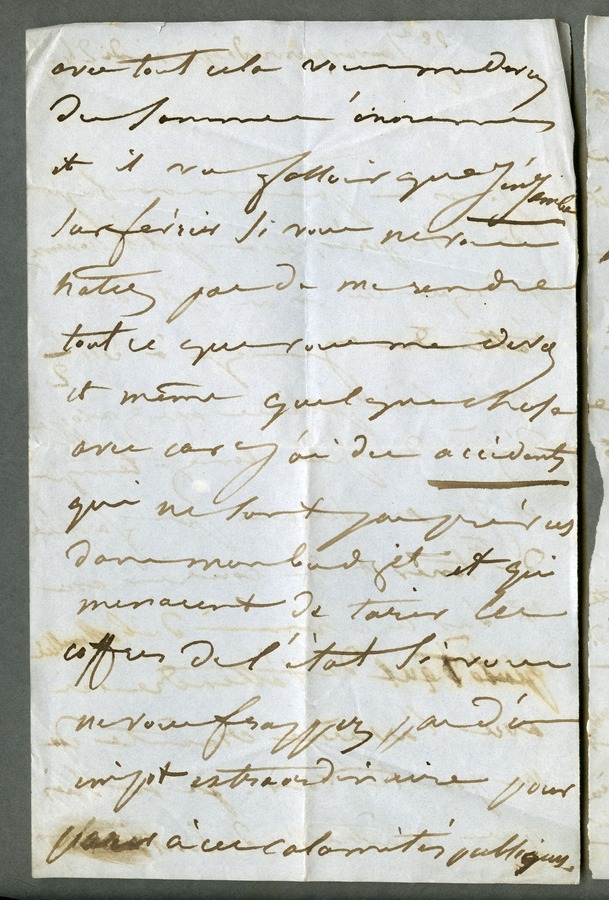 avec tout cela vous me devez
des sommes énormes
et il va falloir que j'en
sur février si vous ne vous
hatez pas de me rendre
tout ce que vous me devez
et même quelque chose
avec car j'ai des accidents
qui ne sont pas prévus
dans mon budjet et qui
menacent de tarir les
coffres de l'état si vous
ne vous frappez pas d'un
impot extraordinaire pour
parer à ces calamités publiques.